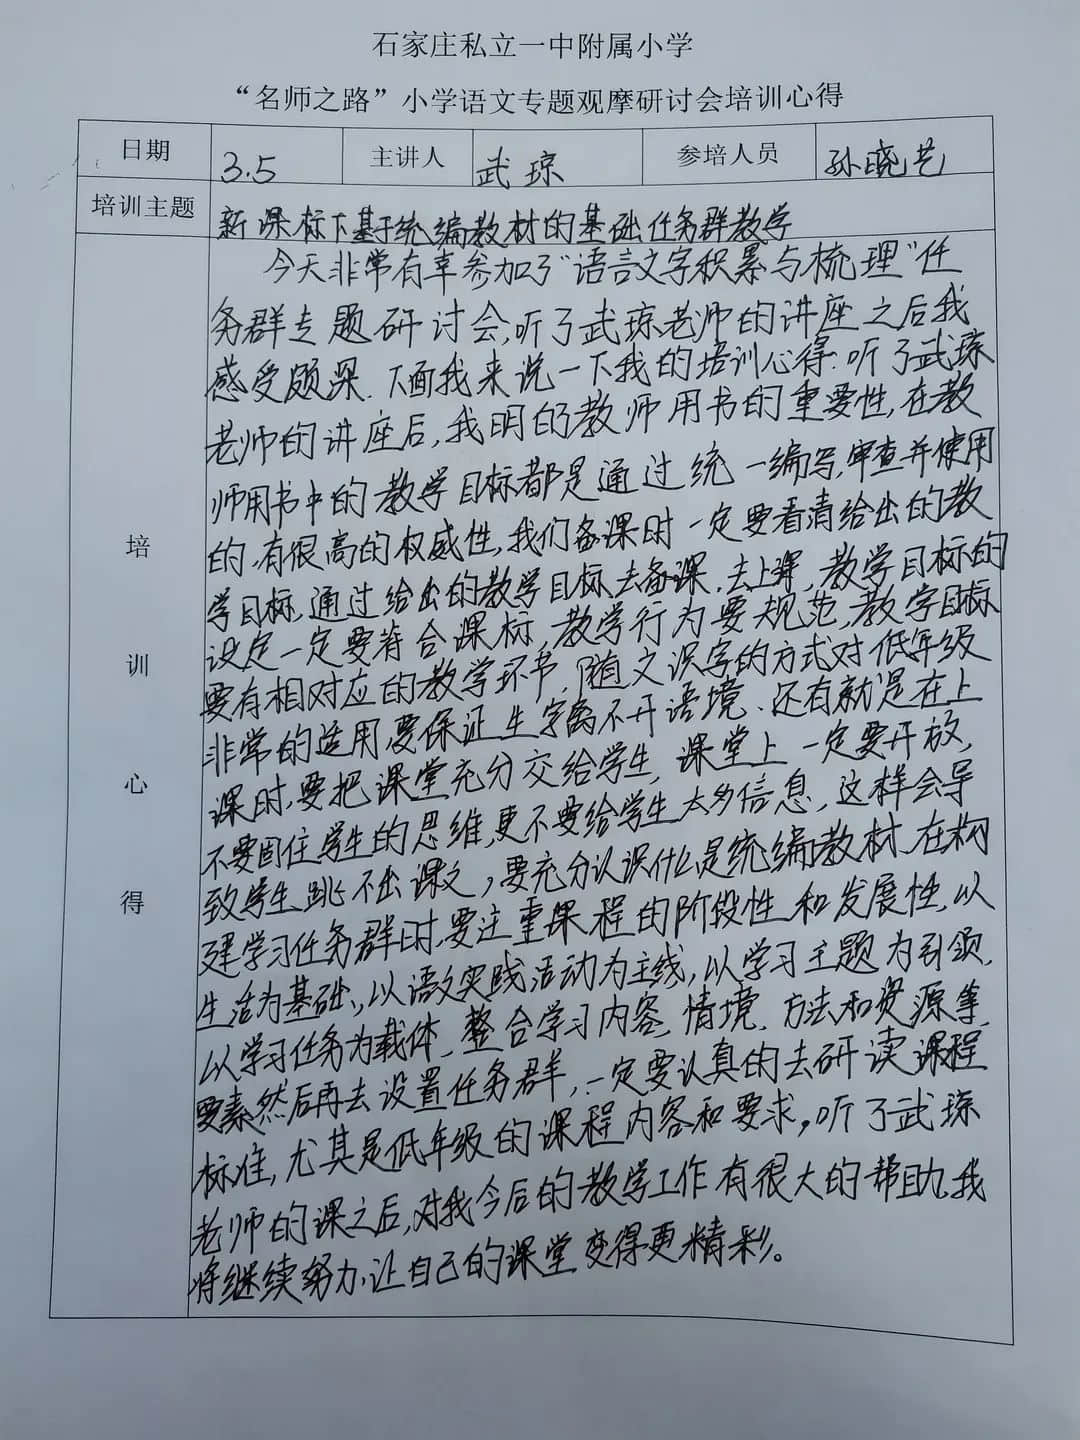 石家庄私立一中附属小学
“名师之路”小学语文专题观摩研讨会培训心得
日期 3.5 主讲人 武琼 参培人员 孙晓艺
培训主题 新课标下基于统编教材的基础任务群教学
培训心得
今天非常有幸参加了“语言文字积累与梳理”任
务群专题研讨会,听了武琼老师的讲座之后我
感受颇深.下面我来说一下我的培训心得.听了武琼
老师的讲座后,我明的教师用书的重要性,在教
师用书中的教学目标都是通过统一编写,审查并使用
的,有很高的权威性,我们备课时一定要看清给出的教
学目标,通过给出的教学目标去备课,去上课,教学目标的
设定一定要符合课标,教学行为要规范,教学目标
要有相对应的教学环节,随文识字的方式对低年级
非常的适用,要保证生字离不开语境.还有就是在上
课时,要把课堂充分交给学生,课堂上一定要开放,
不要固住学生的思维,更不要给学生太多信息,这样会导
致学生跳不出课文,要充分认识什么是统编教材.在构
建学习任务群时,要注重课程的阶段性和发展性,以
生活为基础,以语文实践活动为主线,以学习主题为引领,
以学习任务为载体,整合学习内容,情境,方法和资源等
要素然后再去设置任务群,一定要认真的去研读课程
标准,尤其是低年级的课程内容和要求,听了武琼
老师的课之后,对我今后的教学工作有很大的帮助,我
将继续努力,让自己的课堂变得更精彩。